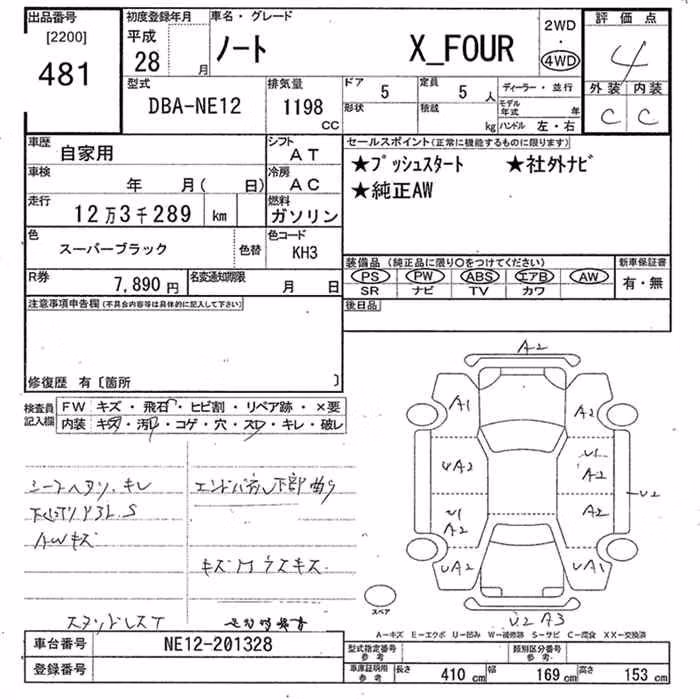 出品番号 初度登録年月 車名・グレード 2WD 評価点
[2200] 平成 ・
481 28 月 ノート X_FOUR 4WD 4
型式 排気量 ドア 5 定員 5 人 ディーラー・並行 外装 内装
DBA-NE12 1198 CC 形状 積載 kg モデル年式 年 C C
ハンドル 左・右
車歴 自家用 シフト AT セールスポイント(正常に機能するものに限ります)
車検 年 月( 日) 冷房 AC ★プッシュスタート ★社外ナビ
走行 12万3千289 km 燃料 ガソリン ★純正AW
色 スーパーブラック 色替 色コード KH3
装備品(純正品に限り○をつけてください) 新車保証書
R券 7,890円 名変通知期限 月 日 PS PW ABS エアB AW 有・無
SR ナビ TV カワ
注意事項申告欄(不具合内容等は具体的に記入して下さい) 後日品
修復歴 有〔箇所 〕
検査員記入欄 FW キズ・飛石・ヒビ割・リペア跡・×要
内装 キズ・汚れ・コゲ・穴・スレ・キレ・破レ
A2
A1 A2
UA2 U1 A2
U1 A2 A2 U2
UA2 UA1
シートヘタリ、キレ
AWキズ
キズMウスキズ
スタッドレスT
スペア
U2 A3
A—キズ E—エクボ U—凹み W—補修跡 S—サビ C—腐食 XX—交換済
車台番号 NE12-201328 型式指定番号 参考 類別区分番号 参考
登録番号 車庫証明用 参考 長さ 410 cm 幅 169 cm 高さ 153 cm